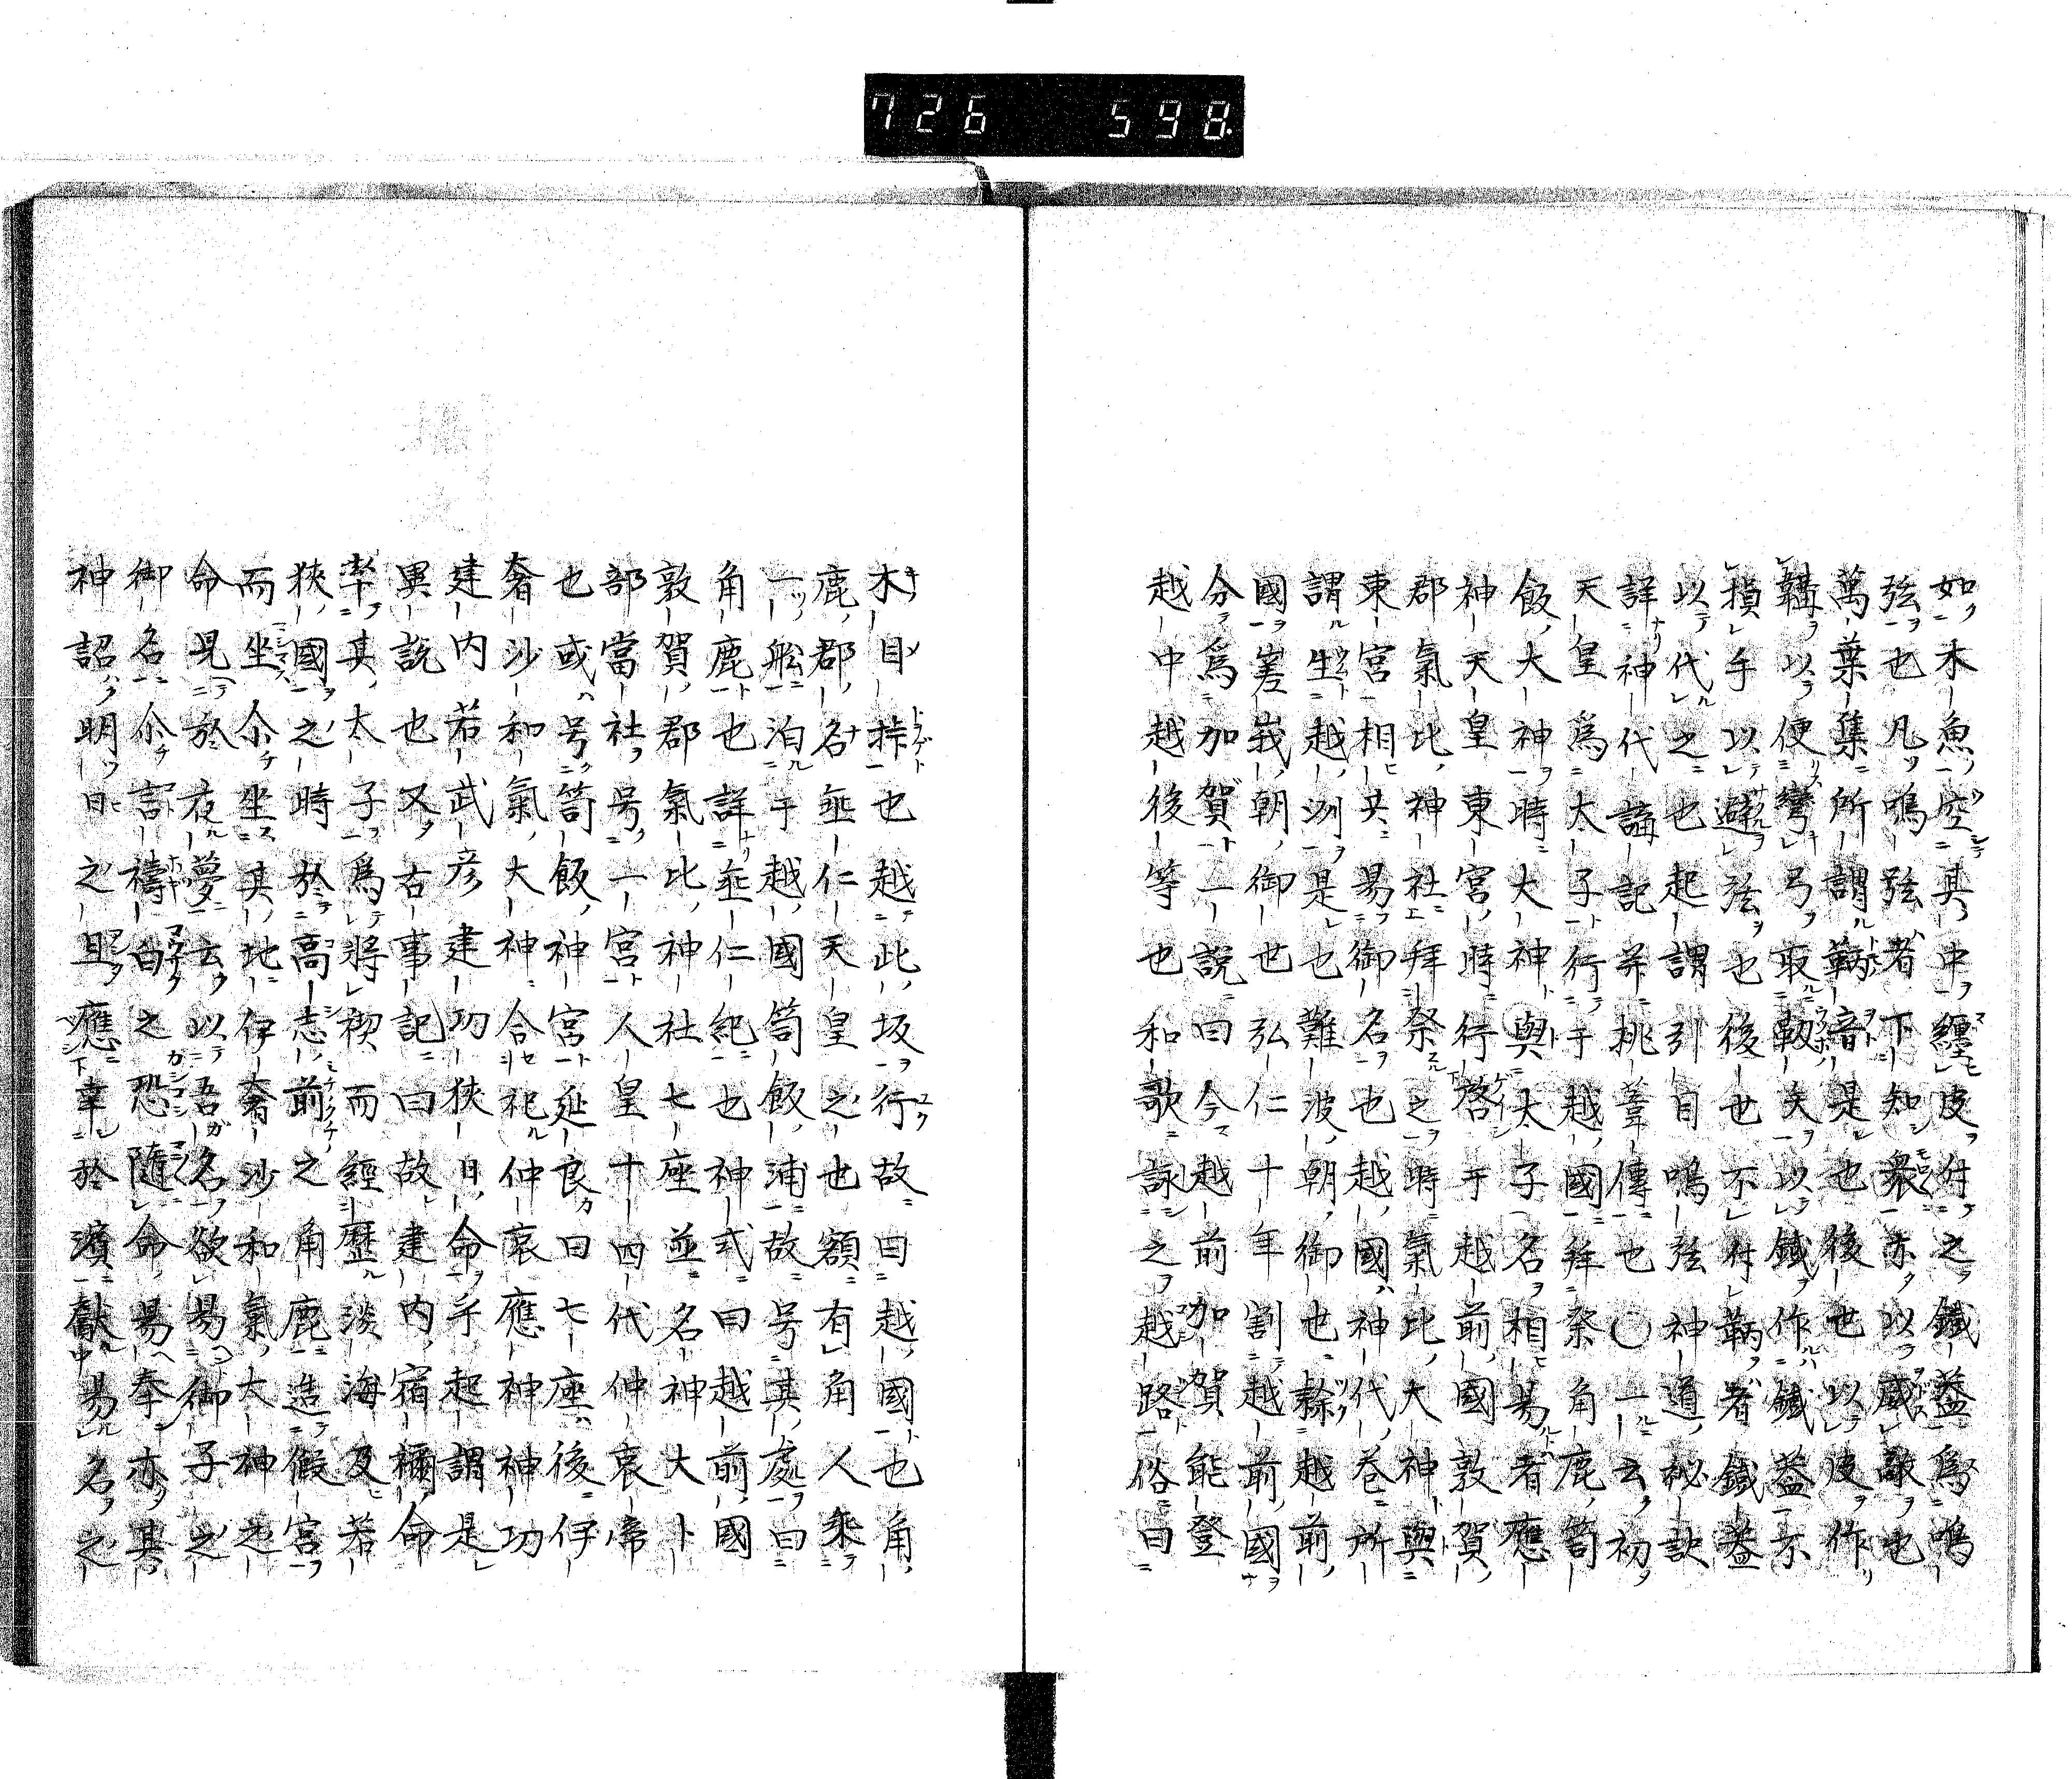 726 598
如木魚空其中纏皮付之鐵葢爲鳴
弦也凡鳴弦者下知衆亦以威敵也
萬葉集所謂鞆音是也後世以皮作
鞲以便彎弓取靱矢以鐵作鐵葢示
損手以避弦也後世不付鞆者鐵葢
以代之也起謂引目鳴弦神道秘訣
詳神代講記并桃華傳也○一云初
天皇爲太子行于越國拜祭角鹿笥
飯大神時大神與太子名相易者應
神天皇東宮時行啓于越前國敦賀
郡氣比神社拜祭之時氣比大神與
東宮相共易御名也越國神代卷所
謂生越洲是也難波朝御世隸越前
國嵳峩朝御世弘仁十年割越前國
分爲加賀一說曰今越前加賀能登
越中越後等也和歌詠之越路俗曰
木目挊也越此坂行故曰越國也角
鹿郡名垂仁天皇之也額有角人乘
一舩泊于越國笥飯浦故号其處曰
角鹿也詳垂仁紀也神式曰越前國
敦賀郡氣比神社七座並名神大卜
部當社号一宮人皇十四代仲哀帝
也或号笥飯神宮延良曰七座後伊
奢沙和氣大神合祀仲哀應神神功
建内若武彦建功狹日命乎起謂是
異說也又古事記曰故建内宿禰命
率其太子爲將禊而經歷淡海及若
狹國之時於高志前之角鹿造假宮
而坐尒坐其地伊奢沙和氣大神之
命見於夜夢云以吾名欲易御子之
御名尒言禱白之恐隨命易奉亦其
神詔明日之旦應幸於濱獻易名之